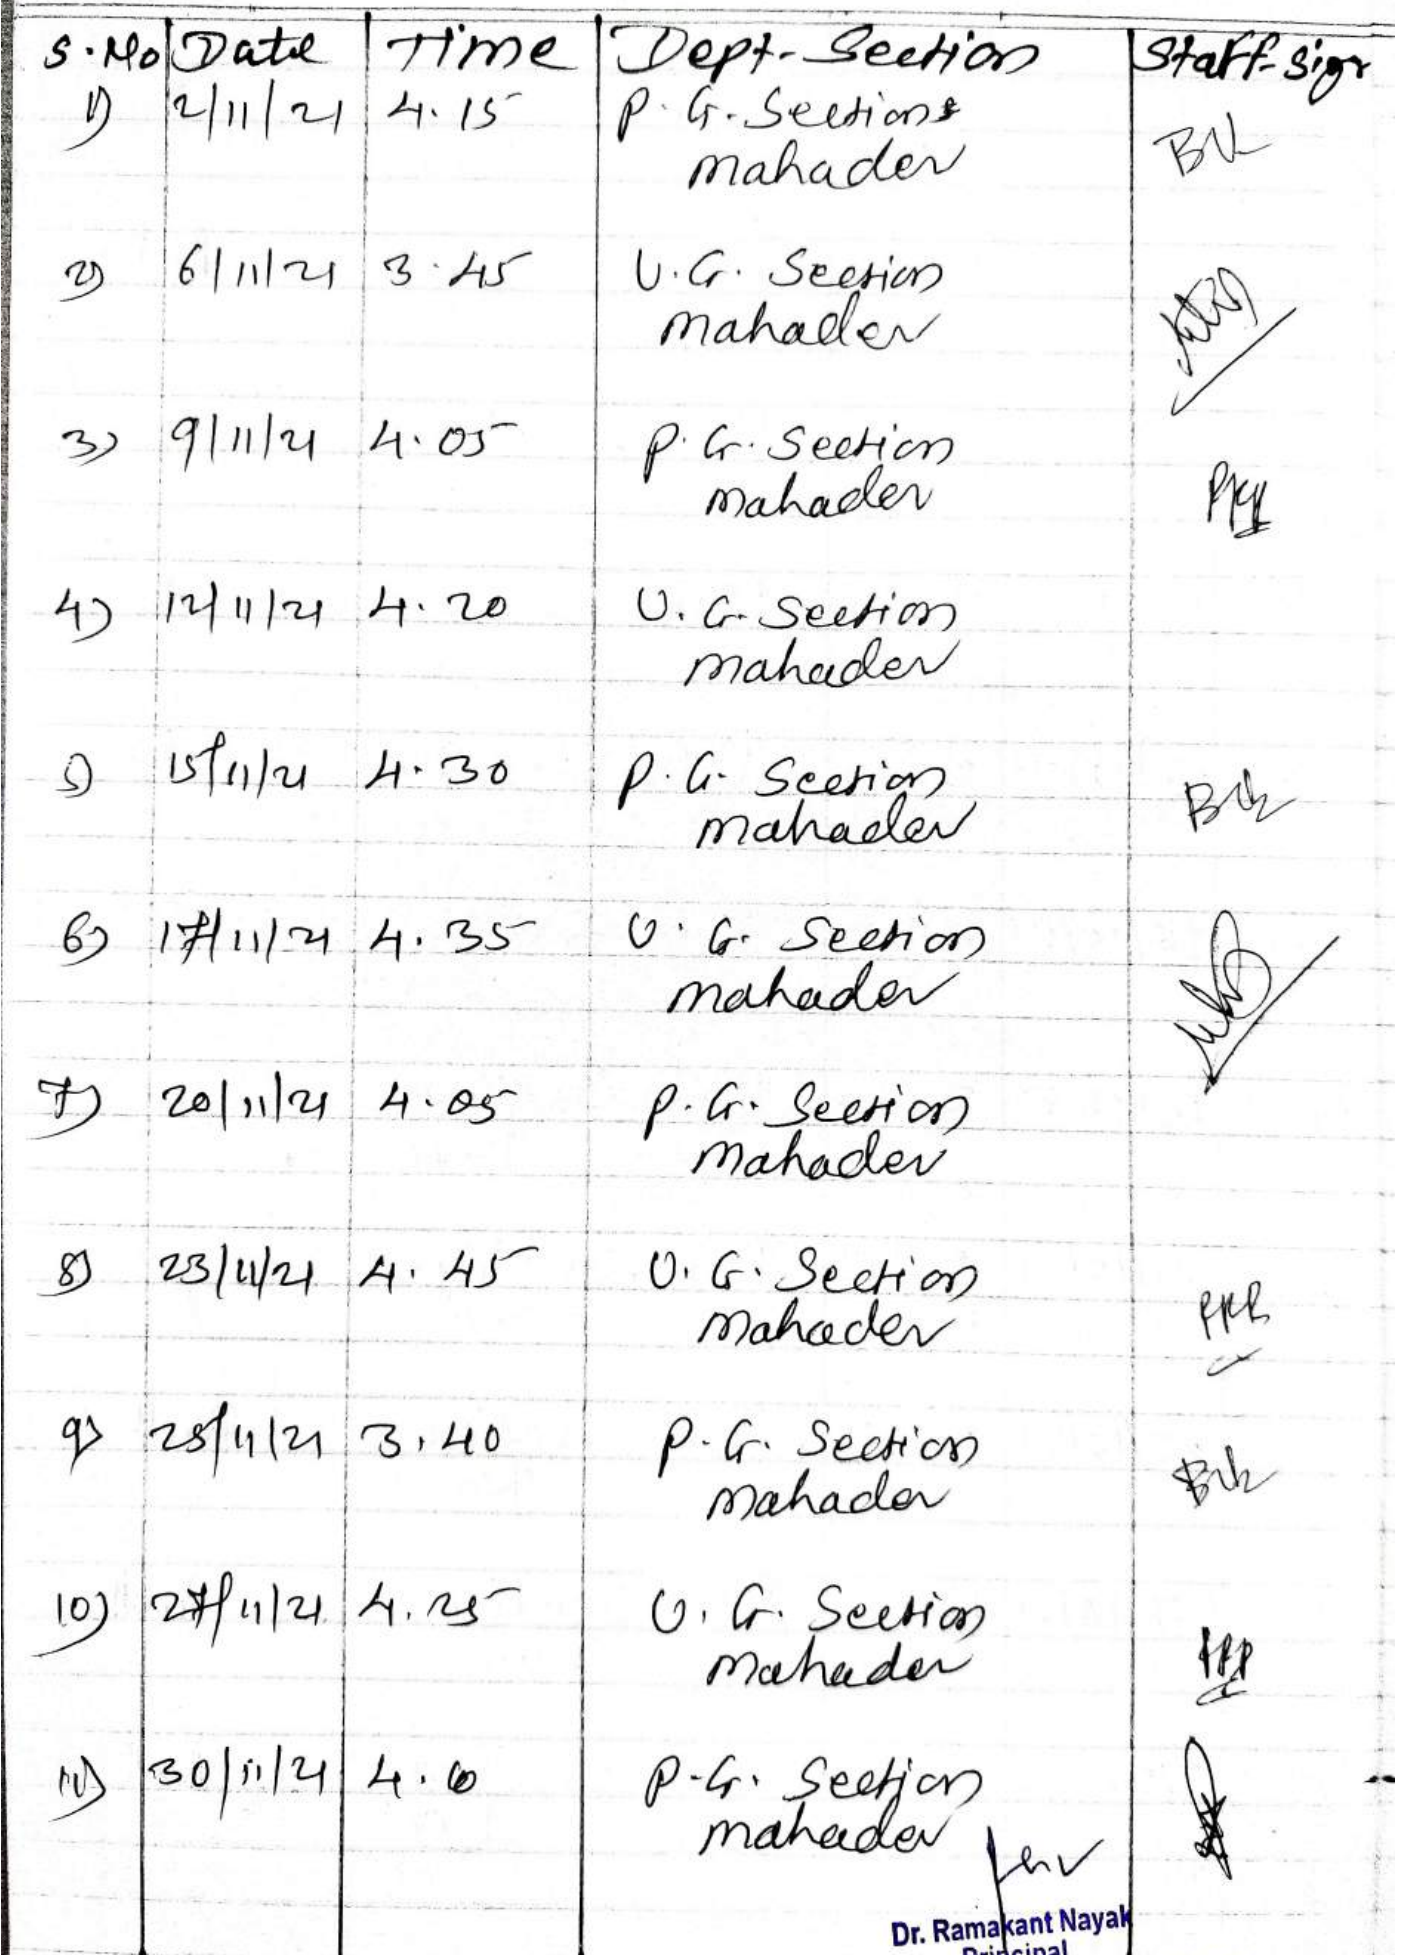 S.No Date Time Dept-Section Staff-Sign
1) 2/11/21 4.15 P.G. Section
Mahadev
2) 6/11/21 3.45 U.G. Section
Mahadev
3) 9/11/21 4.05 P.G. Section
Mahadev
4) 12/11/21 4.20 U.G. Section
Mahadev
5) 15/11/21 4.30 P.G. Section
Mahadev
6) 17/11/21 4.35 U.G. Section
Mahadev
7) 20/11/21 4.05 P.G. Section
Mahadev
8) 23/11/21 4.45 U.G. Section
Mahadev
9) 25/11/21 3.40 P.G. Section
Mahadev
10) 27/11/21 4.25 U.G. Section
Mahadev
11) 30/11/21 P.G. Section
Mahadev
Dr. Ramakant Nayak
Principal